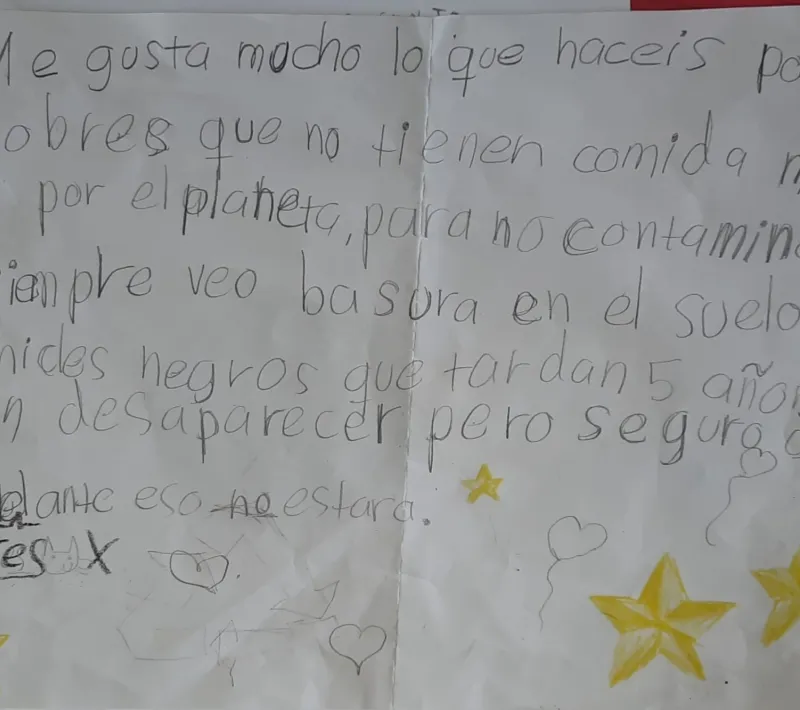 Me gusta mocho lo que haceis po
obres que no tienen comida n
por el planeta, para no contamin
iempre veo basora en el suelo
nides negros que tardan 5 años
n desaparecer pero segura
elante eso no estara.
es X